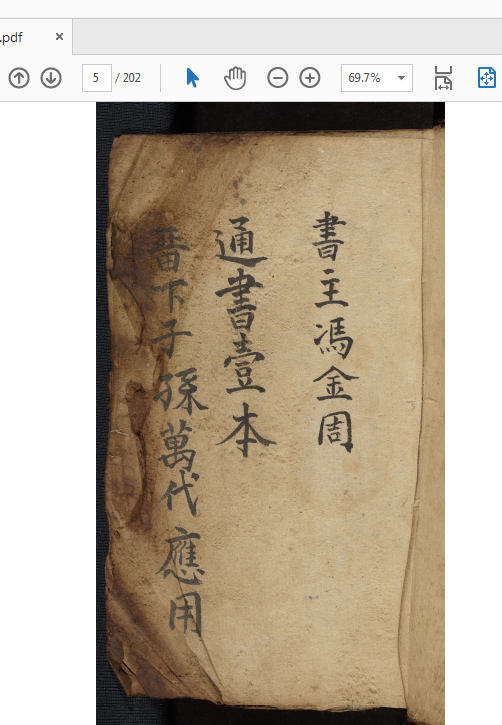 .pdf ×
5 / 202 69.7%
書主馮金周
通書壹本
下子孫萬代應用